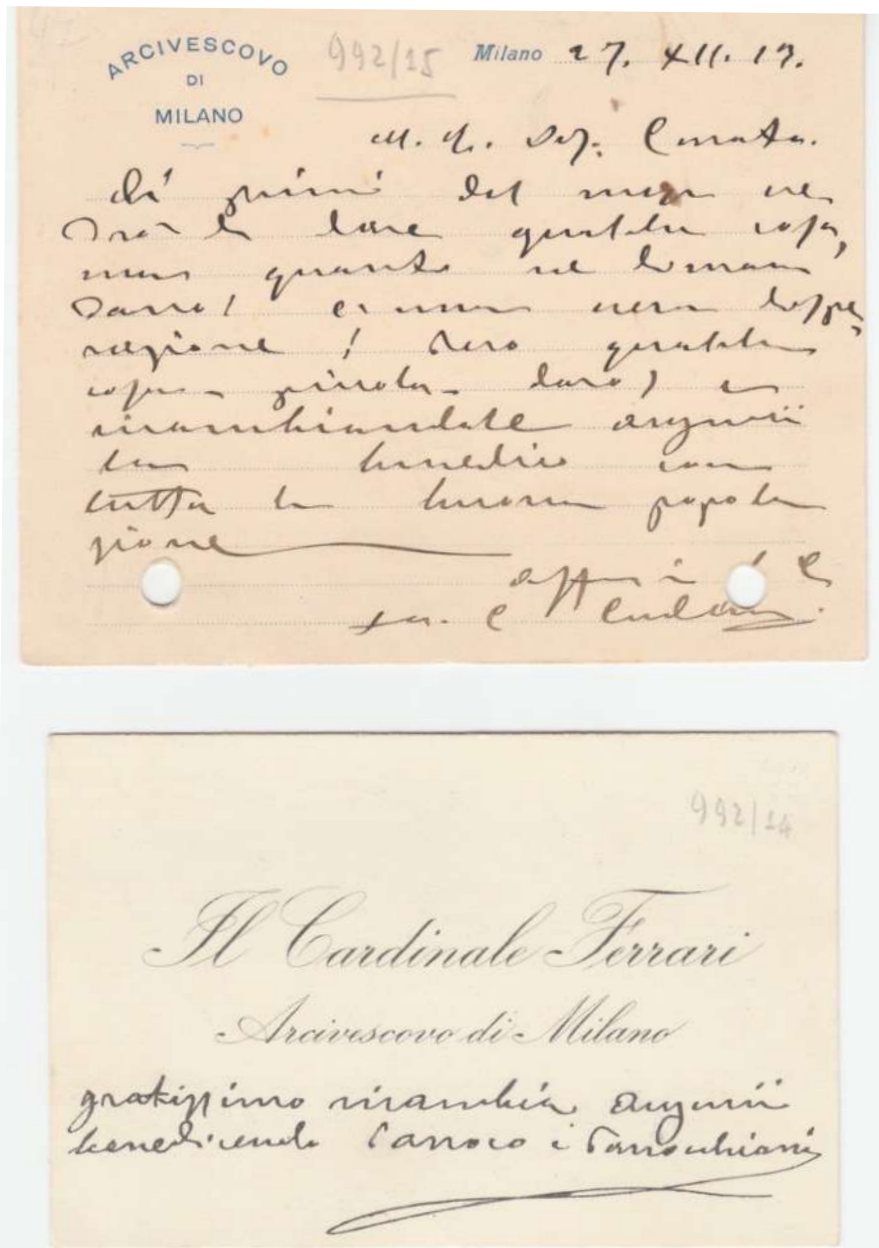 ARCIVESCOVO
DI
MILANO
992/15
Milano 27. XII. 13.
M. R. Sig. Curato.
Ai primi del mese ve
drò di dare qualche cosa,
ma quante ne
e una vera dispe
razione! Però qualche
cosa piccola darò, e
ricambiandole augurii
La benedico con
tutta la buona popola
zione
aff
+ A. C Card
992/14
Il Cardinale Ferrari
Arcivescovo di Milano
gratissimo ricambia augurii
benedicendo Parroco e Parrocchiani